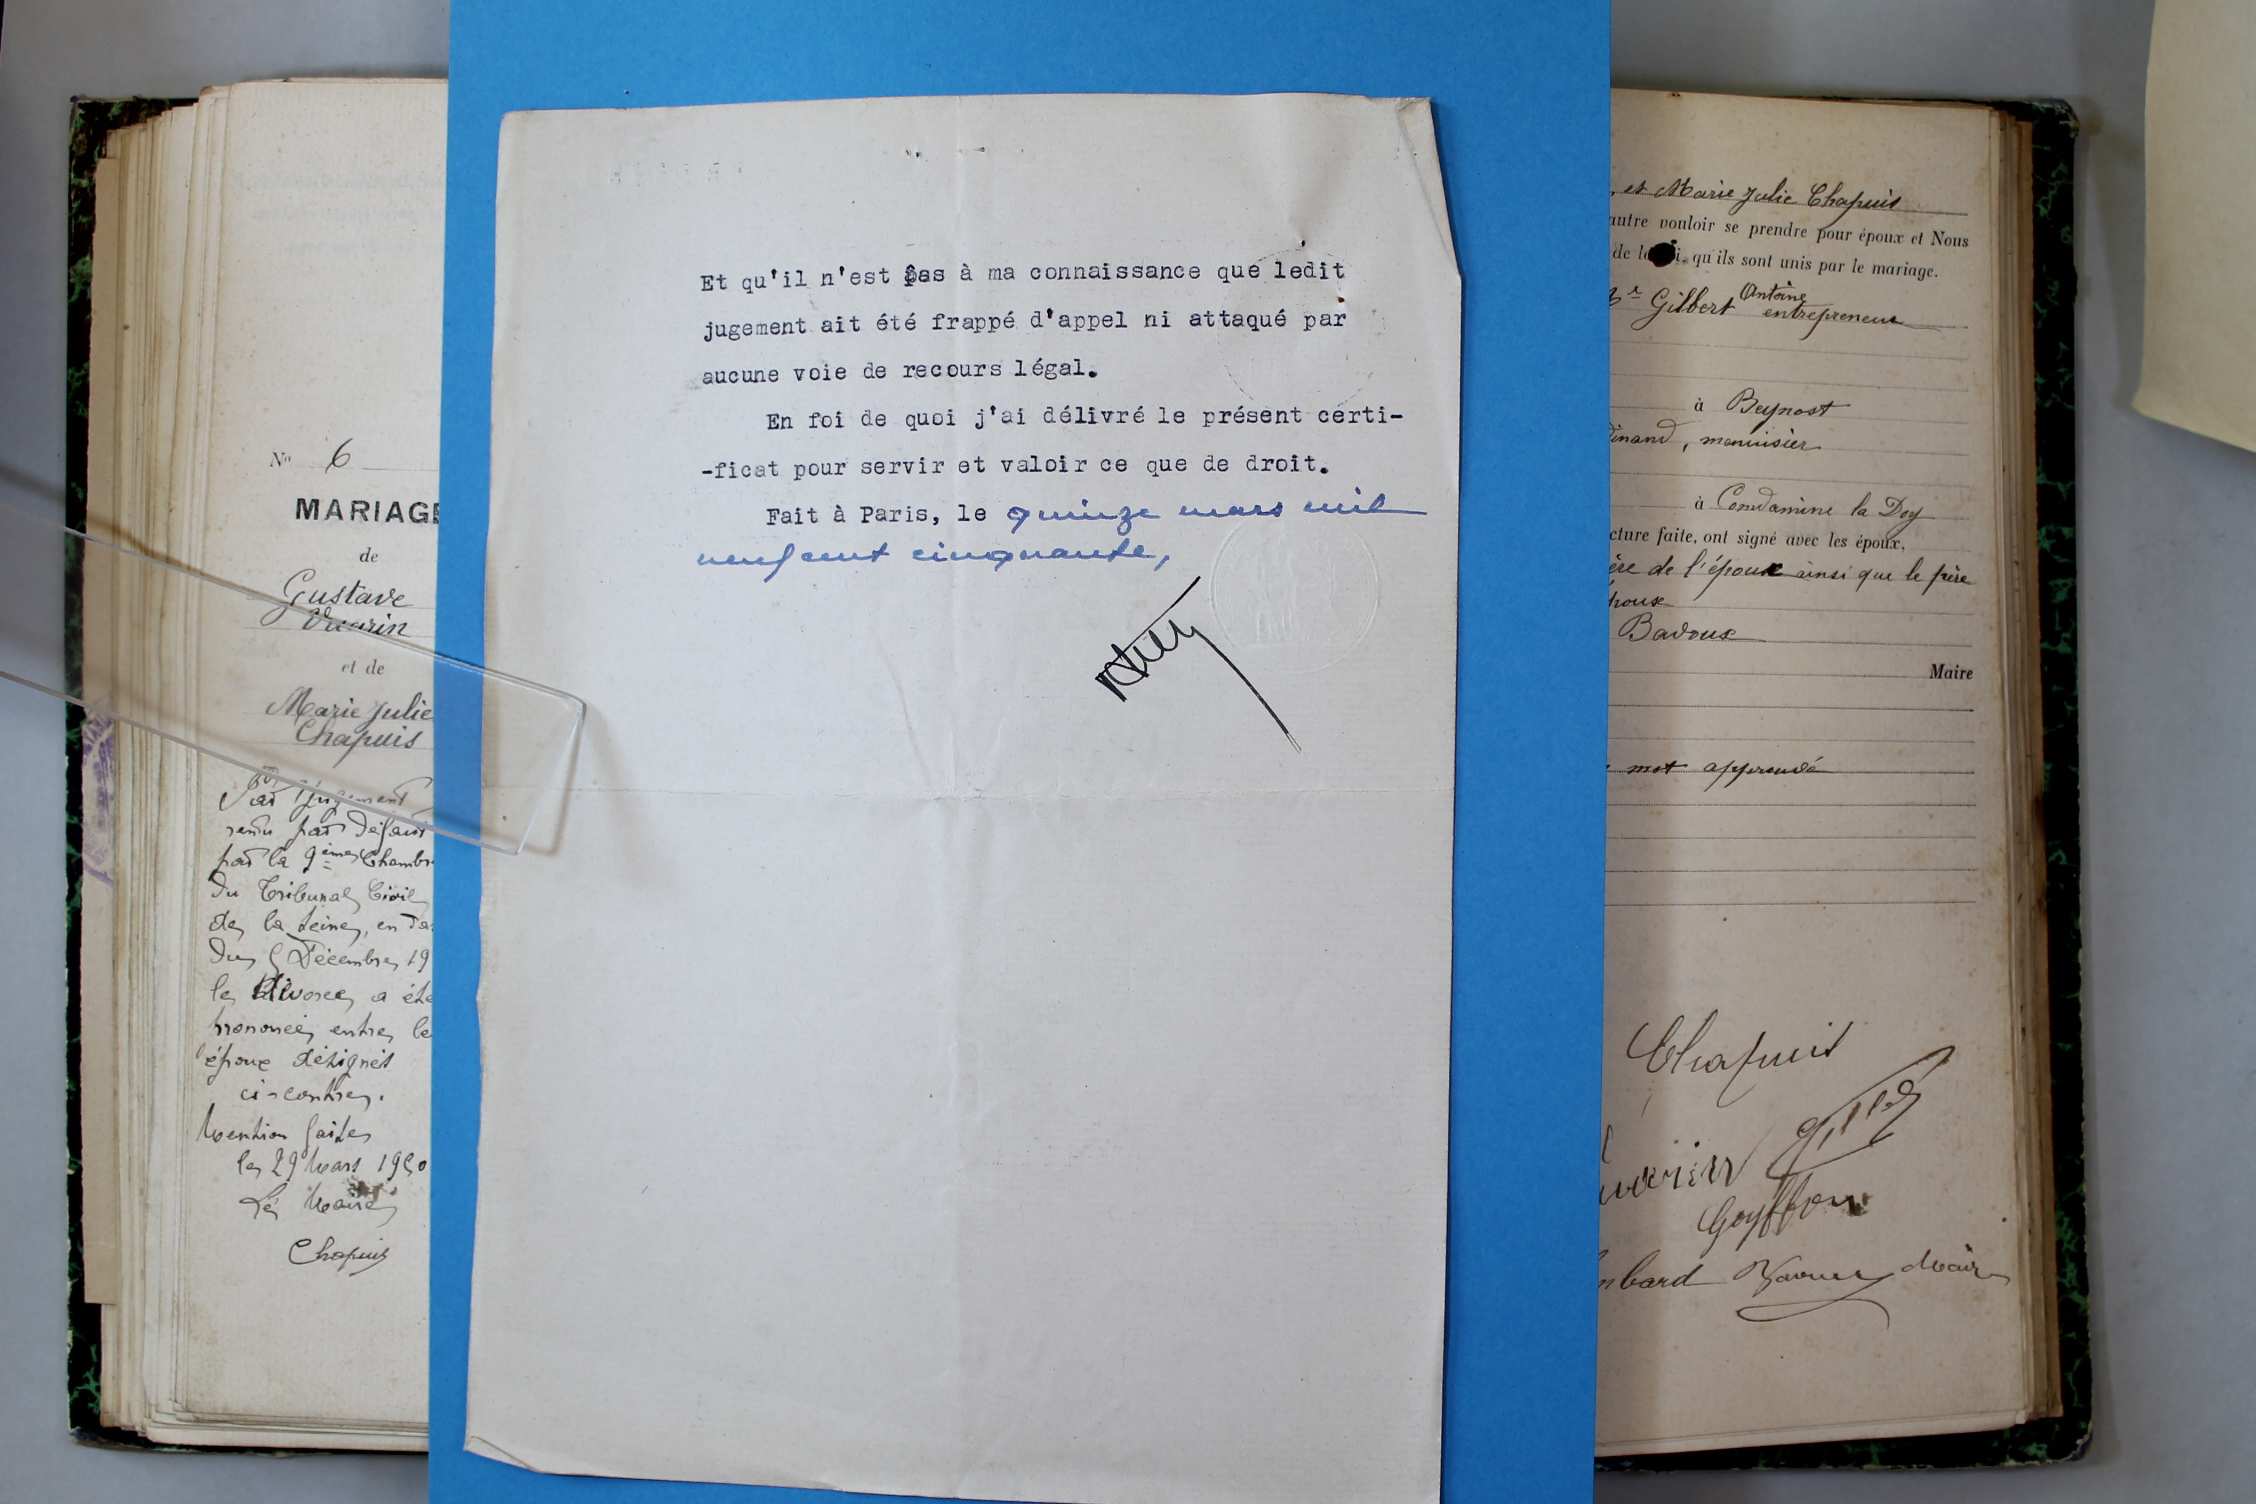 N° 6
MARIAGE
de
Gustave
Vuarin
et de
Marie Julie
Chapuis
Par jugement
rendu par défaut
par la 9ème Chambr
du Tribunal Civil
de la Seine, en da
du 5 Décembre 19
le Divorce a été
prononcé entre le
époux désignés
ci-contre.
Mention faite
le 29 Mars 1950
Le Maire
Chapuis
Et qu'il n'est pas à ma connaissance que ledit
jugement ait été frappé d'appel ni attaqué par
aucune voie de recours légal.
En foi de quoi j'ai délivré le présent certi-
-ficat pour servir et valoir ce que de droit.
Fait à Paris, le quinze mars mil
neuf cent cinquante,
, et Marie Julie Chapuis
autre vouloir se prendre pour époux et Nous
de la loi, qu'ils sont unis par le mariage.
Gilbert Antoine entrepreneur
à Beynost
dinand, menuisier
à Condamine la Doy
cture faite, ont signé avec les époux,
ère de l'époux ainsi que le père
pouse
Badoux
Maire
mot approuvé
Chapuis
Goyffon
mbard Maire